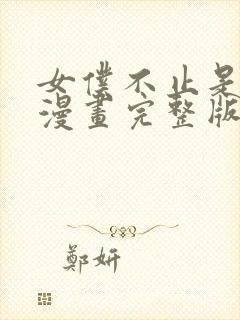 女僕不止是
漫畫完整版
鄭妍